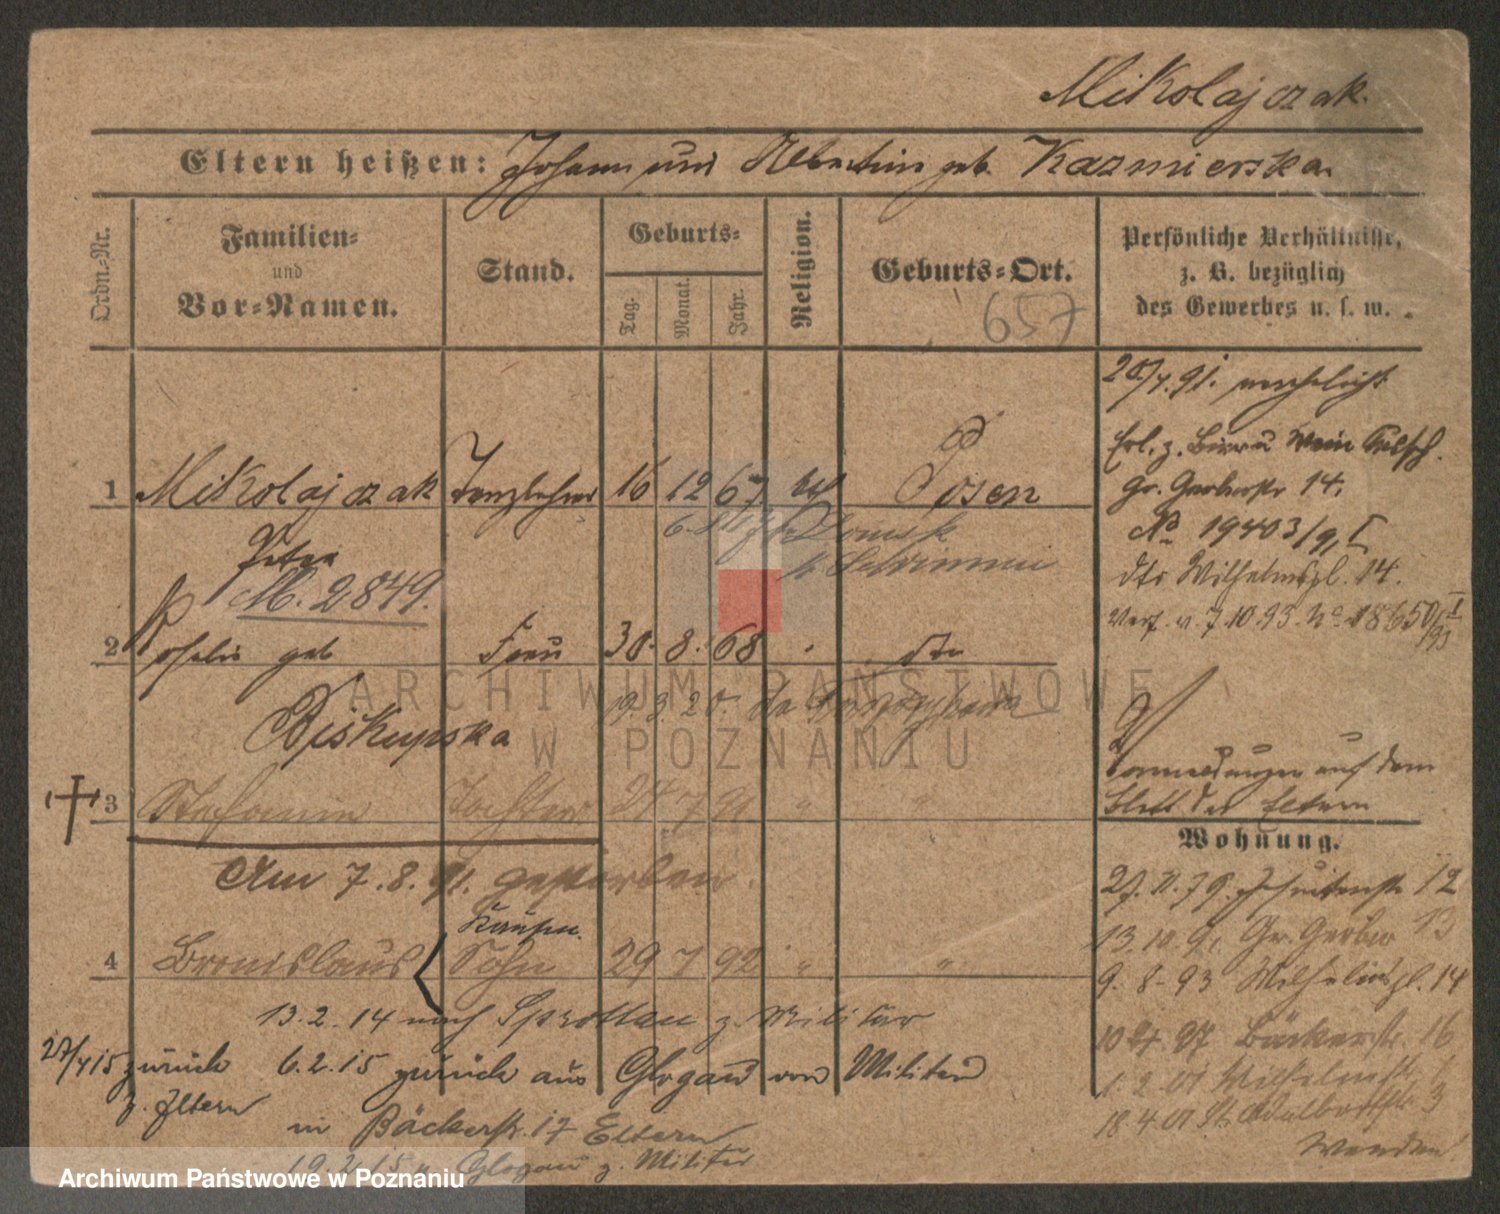 Mikolajczak.
Eltern heißen: Johann und Albertine geb. Kazmierska.
Ordn.-Nr.
Familien-
und
Vor-Namen.
Stand.
Geburts-
Tag.
Monat.
Jahr.
Religion.
Geburts-Ort.
657
Persönliche Verhältnisse,
z. B. bezüglich
des Gewerbes u. s. w.
1 Mikolajczak Tanzlehrer 16 12 67 kath Posen
Peter
M. 2849.
2 geb Frau 30. 8. 68 dto
Biskupska
19. 3. 20.
† 3 Stefanie Tochter 24 7 91 " "
Am 7. 8. 91. gestorben.
Kaufm.
4 Bronislaus Sohn 29 7 92 " "
13. 2. 14 nach Sprottau z. Militär
27/4 15 zurück 6. 2. 15 zurück aus Glogau von Militär
z. Eltern
in Bäckerstr. 17 Eltern
19. 2. 15 n. Glogau z. Militär
20/4. 91. verehelicht
Erl. z. Bier u Wein
Gr. Gerberstr 14.
No 19403/91 I
dto Wilhelmspl. 14.
Verf. v. 7. 10. 93. No 18650/93 I
auf dem
Blatt der Eltern
Wohnung.
27. 11. 79. Jesuitenstr 12
13. 10. 91 Gr. Gerber 13
9. 8. 93 Wilhelmspl. 14
10 97 Bäckerstr. 16
1. 2. 01 Wilhelmstr.
18. 4. 01 St. Adalbertstr. 3
Wenden!
ARCHIWUM PAŃSTWOWE
W POZNANIU
Archiwum Państwowe w Poznaniu